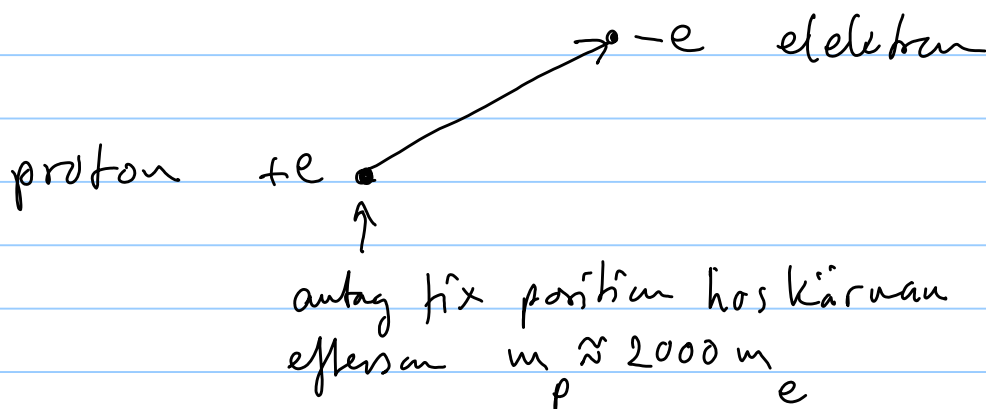 -e elektron
proton +e
antag fix position hos kärnan
eftersom m_p ≈ 2000 m_e